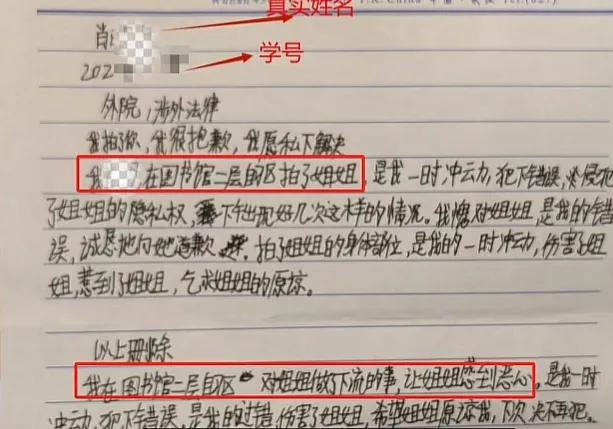 真实姓名
肖
学号
202
外院，涉外法律
我拍了你，我很抱歉，我愿私下解决
我 ，在图书馆二层自习区拍了姐姐，是我一时冲动，犯下错误，侵犯
了姐姐的隐私权， 下午出现好几次这样的情况。我愧对姐姐，是我的错
误，诚恳地向她道歉 。拍了姐姐的身体部位，是我的一时冲动，伤害了姐
姐，惹到了姐姐，乞求姐姐的原谅。
以上删除
我在图书馆二层自习区 对姐姐做了下流的事，让姐姐感到恶心，是我一时
冲动，犯下错误，是我的过错，伤害了姐姐，希望姐姐原谅我，下次决不再犯。